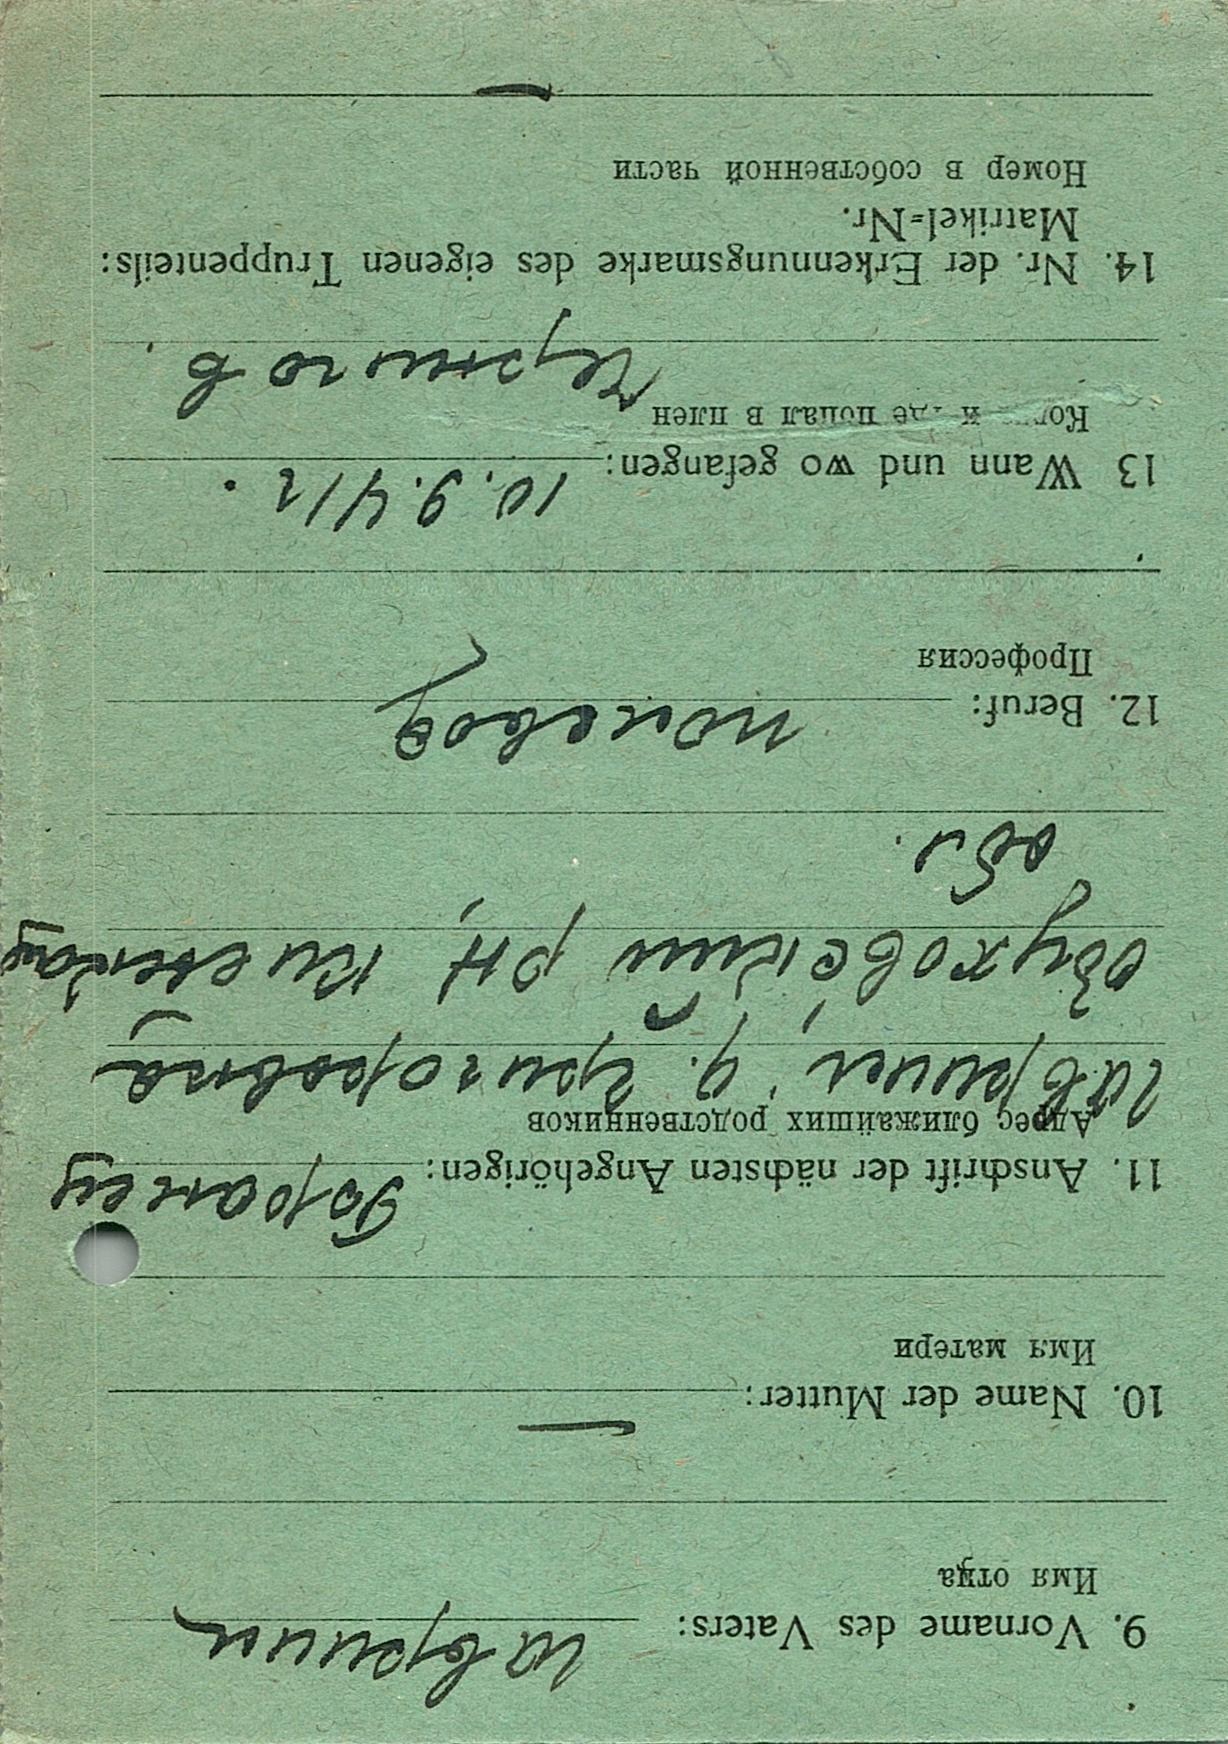 9. Vorname des Vaters: Гаврыил
Имя отца
10. Name der Mutter: —
Имя матери
11. Anschrift der nächsten Angehörigen:
Адрес ближайших родственников
д. Григоровка
Обуховский рн, Киевской
обл.
12. Beruf: полевод
Профессия
13 Wann und wo gefangen: 10.9.41 г.
Когда и где попал в плен
Чернигов
14. Nr. der Erkennungsmarke des eigenen Truppenteils:
Matrikel=Nr.
Номер в собственной части
—